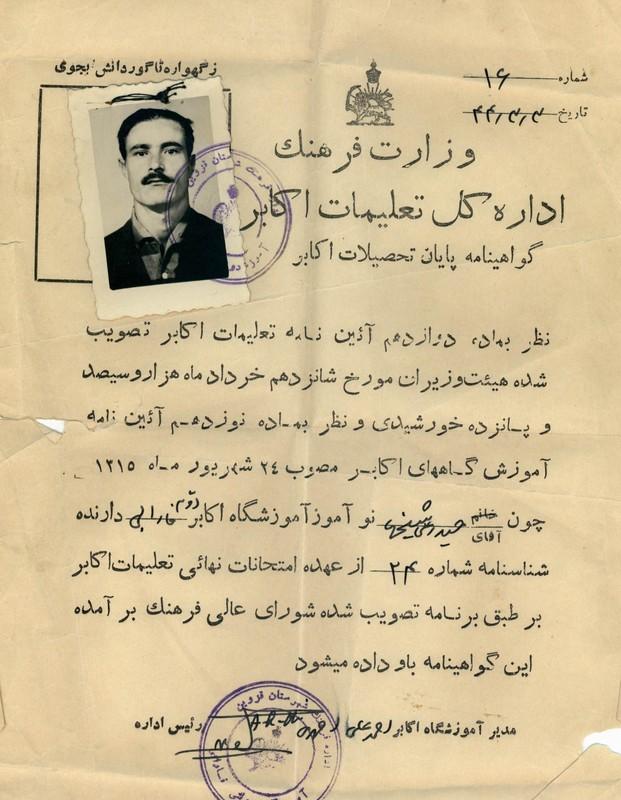 ز گهواره تا گور دانش بجوی
شماره ۱۶
تاریخ ۴۴/۳/۳
وزارت فرهنگ
اداره کل تعلیمات اکابر
گواهینامه پایان تحصیلات اکابر
نظر بماده دوازدهم آئین نامه تعلیمات اکابر تصویب
شده هیئت وزیران مورخ شانزدهم خرداد ماه هزار و سیصد
و پانزده خورشیدی و نظر بماده نوزدهم آئین نامه
آموزش گاههای اکابر مصوب ۲۴ شهریور ماه ۱۳۱۵
چون خانم آقای نوآموز آموزشگاه اکابر دارنده
شناسنامه شماره ۲۴ از عهده امتحانات نهائی تعلیمات اکابر
بر طبق برنامه تصویب شده شورای عالی فرهنگ بر آمده
این گواهینامه باو داده میشود
مدیر آموزشگاه اکابر رئیس اداره
شهرستان قزوین